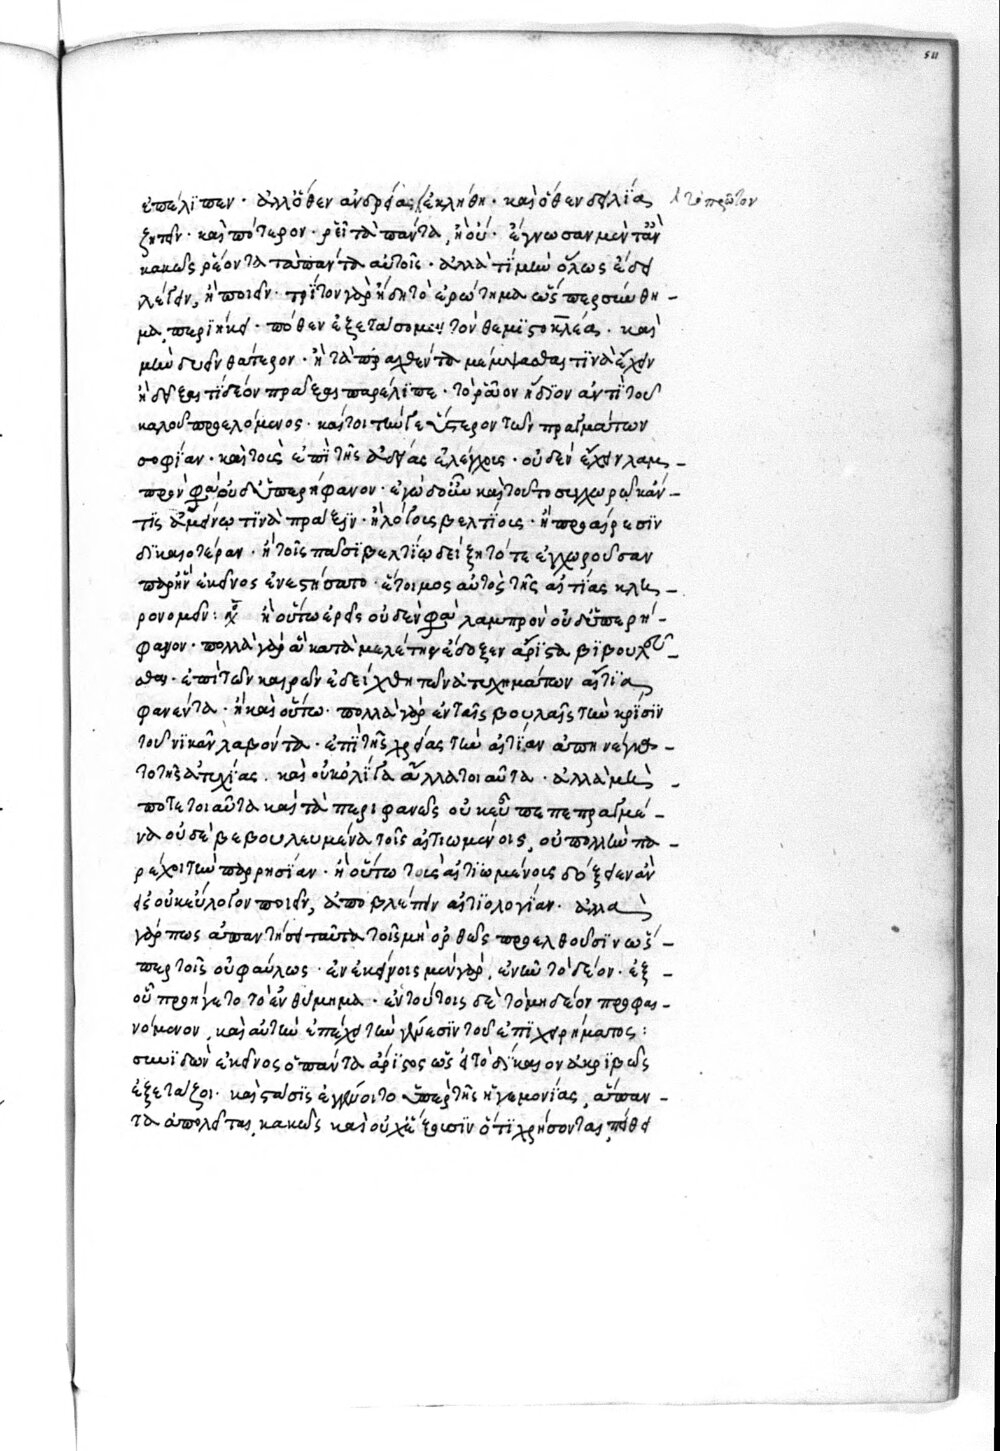 511
ἐπέλιπεν · ἀλλ' ὅθεν ἀνδρείας ἐκλήθη · καὶ ὅθεν δειλίας
τὸ πρῶτον
ζητεῖν · καὶ πότερον · ῥεῖ τὰ πάντα, ἢ οὔ · ἔγνωσαν μὲν τἂν
κακῶς ῥέοντα τὰ πάντα αὐτοῖς · ἀλλὰ τί μὴν ὅλως ἔδει
λέγειν, ἢ ποιεῖν · τρίτον γὰρ ἤδη τὸ ἐρώτημα ὥσπερ σύνθη-
μα, περιήκει · πόθεν ἐξετάσομεν τὸν θεμιστοκλέα · καὶ
μὴν δυεῖν θάτερον · ἢ τὰ πραχθέντα μέμψασθαι τινὰ ἔχειν
ἢ δεῖξαι τί δέον πρᾶξαι παρέλιπε · τὸ ῥᾷον ἢ ἥδιον ἀντὶ τοῦ
καλοῦ προελόμενος · καίτοι τήν γε ὕστερον τῶν πραγμάτων
σοφίαν · καὶ τοὺς ἐπὶ τῆς ἀδείας ἐλέγχους · οὐδὲν ἔχειν λαμ-
πρὸν φαῖ οὐδ' ὑπερήφανον · ἐγὼ δ' οὖν καὶ τοῦτο συγχωρῶ κἄν-
τις ἀμείνω τινὰ πρᾶξιν · ἢ λόγους βελτίους · ἢ προαίρεσιν
δικαιοτέραν · ἢ τοῖς πᾶσι βελτίω δείξῃ τότε ἐγχωροῦσαν
παρ' ἣν ἐκεῖνος ἐνεστήσατο · ἕτοιμος αὐτὸς τῆς αἰτίας κλη-
ρονομεῖν : ἢ οὕτω ἐρεῖς οὐδὲν φαῖ λαμπρὸν οὐδ' ὑπερή-
φανον · πολλὰ γὰρ ἃ κατὰ μελέτην ἔδοξεν ἄριστα βεβουλεῦ-
σθαι · ἐπὶ τῶν καιρῶν ἐδείχθη τῶν ἀτυχημάτων αἴτια
φανέντα · ἢ καὶ οὕτω · πολλὰ γὰρ ἐν ταῖς βουλαῖς τὴν κρίσιν
τοῦ νικᾶν λαβόντα · ἐπὶ τῆς χρείας τὴν αἰτίαν ἀπηνέγκα-
το τῆς ἀτυχίας · καὶ οὐκ ὀλίγα ἀλλὰ τοιαῦτα · ἀλλὰ μὴ
ποτε τοιαῦτα καὶ τὰ περιφανῶς οὐκ εὖ πεπραγμέ-
να οὐδὲ βεβουλευμένα τοῖς αἰτιωμένοις, οὐ πολλὴν πα-
ρέχοι τὴν παρρησίαν · ἢ οὕτω τοῖς αἰτιωμένοις δόξειεν ἂν
εἰς οὐκ εὔλογον ποιεῖν, ἀποβλέπειν αἰτιολογίαν · ἀλλὰ
γάρ πως ἀπαντήσει ταῦτα τοῖς μὴ ὀρθῶς προελθοῦσιν ὥσ-
περ τοῖς οὐ φαύλως · ἐν ἐκείνοις μὲν γὰρ, ἐνῆν τὸ δέον · ἐξ
οὗ προήγετο τὸ ἐνθύμημα · ἐν τούτοις δὲ τὸ μὴ δέον προφαι-
νόμενον, καὶ αὐτὴν ἐπέχει τὴν γένεσιν τοῦ ἐπιχειρήματος :
συνιδὼν ἐκεῖνος ὁ πάντα ἄριστος ὡς εἰ τὸ δίκαιον ἀκριβῶς
ἐξετάζοι · καὶ στάσις ἐγγένοιτο ὑπὲρ τῆς ἡγεμονίας, ἅπαν-
τα ἀπολεῖται, κακῶς καὶ οὐχ ἕξουσιν ὅ τι χρήσονται, πείθει